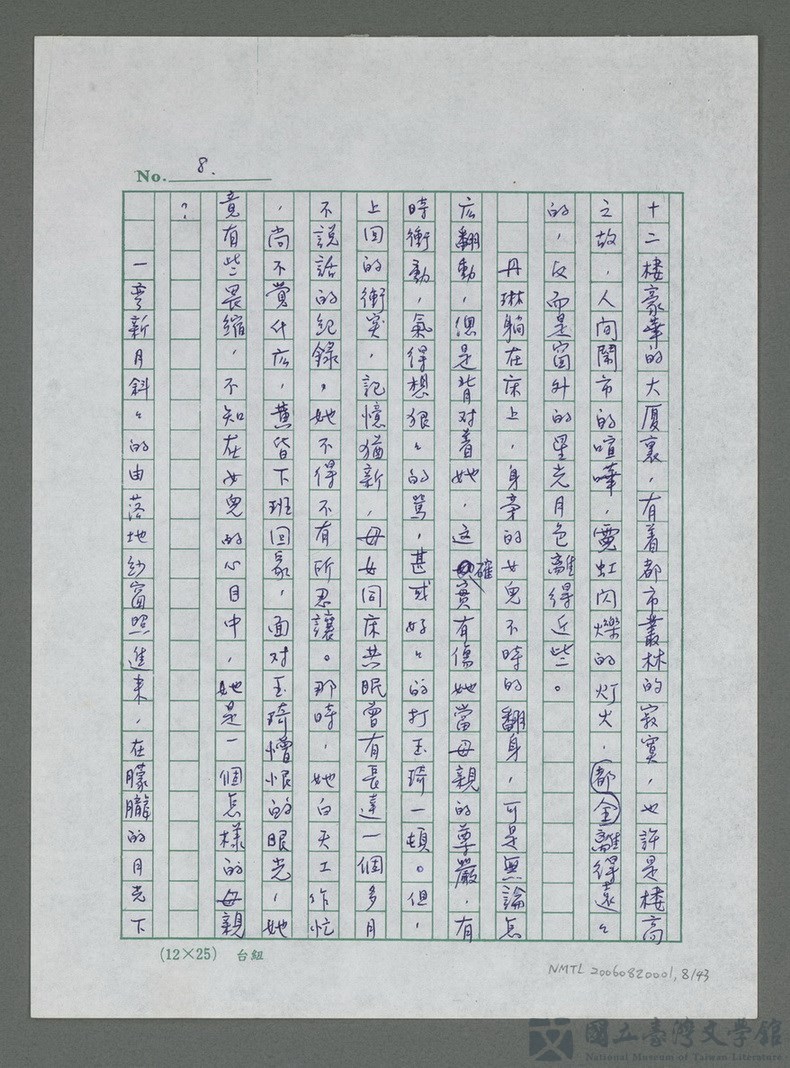 No. 8.
十二楼豪華的大厦裏，有着都市叢林的寂寞，也許是楼高
之故，人间鬧市的喧嘩，霓虹闪爍的灯火，都会離得遠々
的，反而是窗外的星光月色離得近些。
丹琳躺在床上，身旁的女兒不時的翻身，可是無論怎
広翻動，偬是背对着她，这確實有傷她當母親的尊嚴，有
時衝動，氣得想狠々的罵，甚或好々的打玉琦一頓。但，
上回的衝突，記憶猶新，母女同床共眠曾有長達一個多月
不説話的紀錄，她不得不有所忍讓。那時，她白天工作忙
，尚不覺什広，黄昏下班回家，面对玉琦憎恨的眼光，她
竟有些畏縮，不知在女兒的心目中，她是一個怎樣的母親
？
一弯新月斜々的由落地紗窗照進來，在朦朧的月光下
(12×25) 台鈕
NMTL 20060820001, 8/43
國立臺灣文學館
National Museum of Taiwan Literature